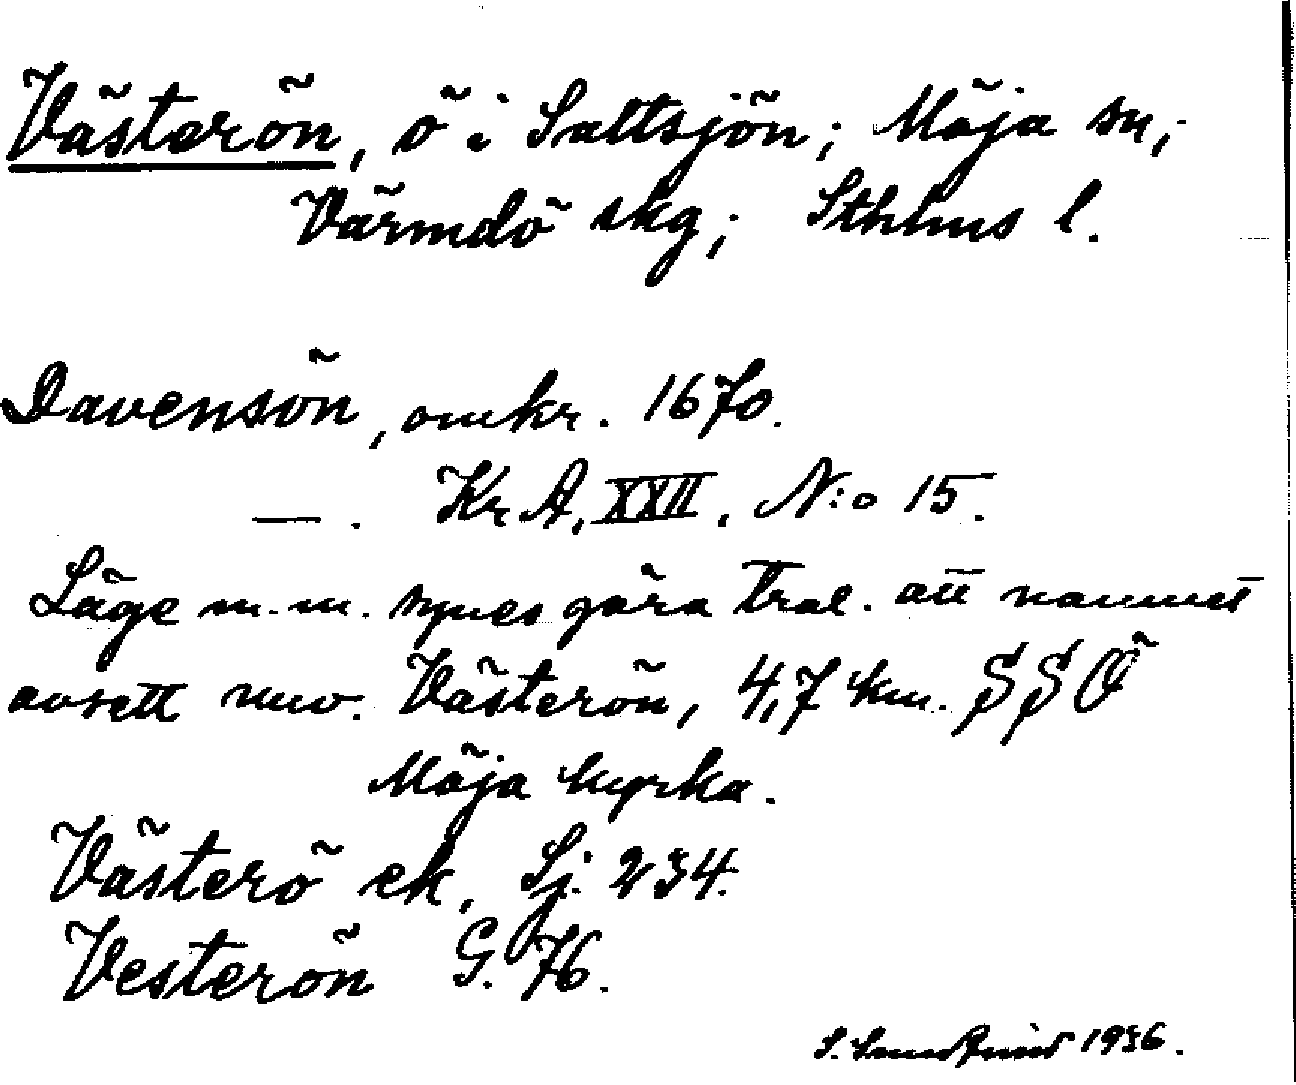 Västerön, ö i Saltsjön; Möja sn;
Värmdö skg; Sthlms l.
Davensön, omkr. 1670.
— . Kr A, XXII, N:o 15.
Läge m.m. synes göra trol. att namnet
avsett nuv. Västerön, 4,7 km. SSÖ
Möja kyrka.
Västerö ek. Sj. 234.
Vesterön G. 76.
S. 1936.